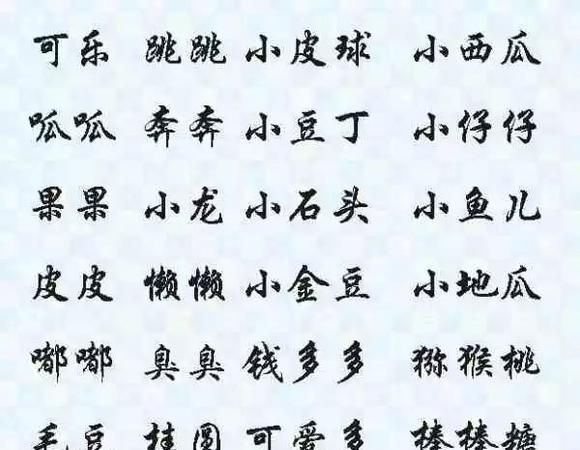 可乐 跳跳 小皮球 小西瓜
呱呱 奔奔 小豆丁 小仔仔
果果 小龙 小石头 小鱼儿
皮皮 懒懒 小金豆 小地瓜
嘟嘟 臭臭 钱多多 猕猴桃
毛豆 桂圆 可爱多 棒棒糖